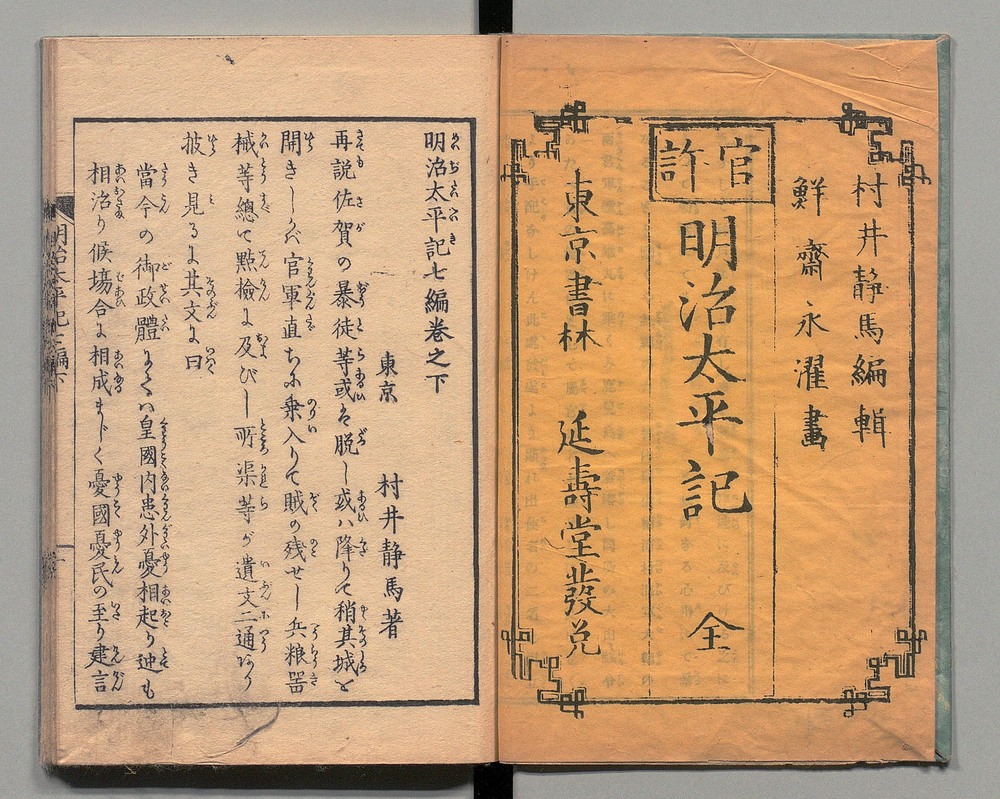 村井靜馬編輯
鮮齋永濯畫
官許
明治太平記 全
東京書林 延壽堂發兌
明治太平記七編巻之下
東京 村井静馬著
再説佐賀の暴徒等或は脱し或ハ降りて稍其城を
開きしかバ官軍直ちに乗入りて賊の残せし兵粮器
械等總て點檢に及びし所渠等が遺文二通あり
披き見るに其文に曰
當今の御政體にてハ皇國内患外憂相起り迚も
相治り候場合に相成まじく憂國憂民の至り建言
明治太平記七編下